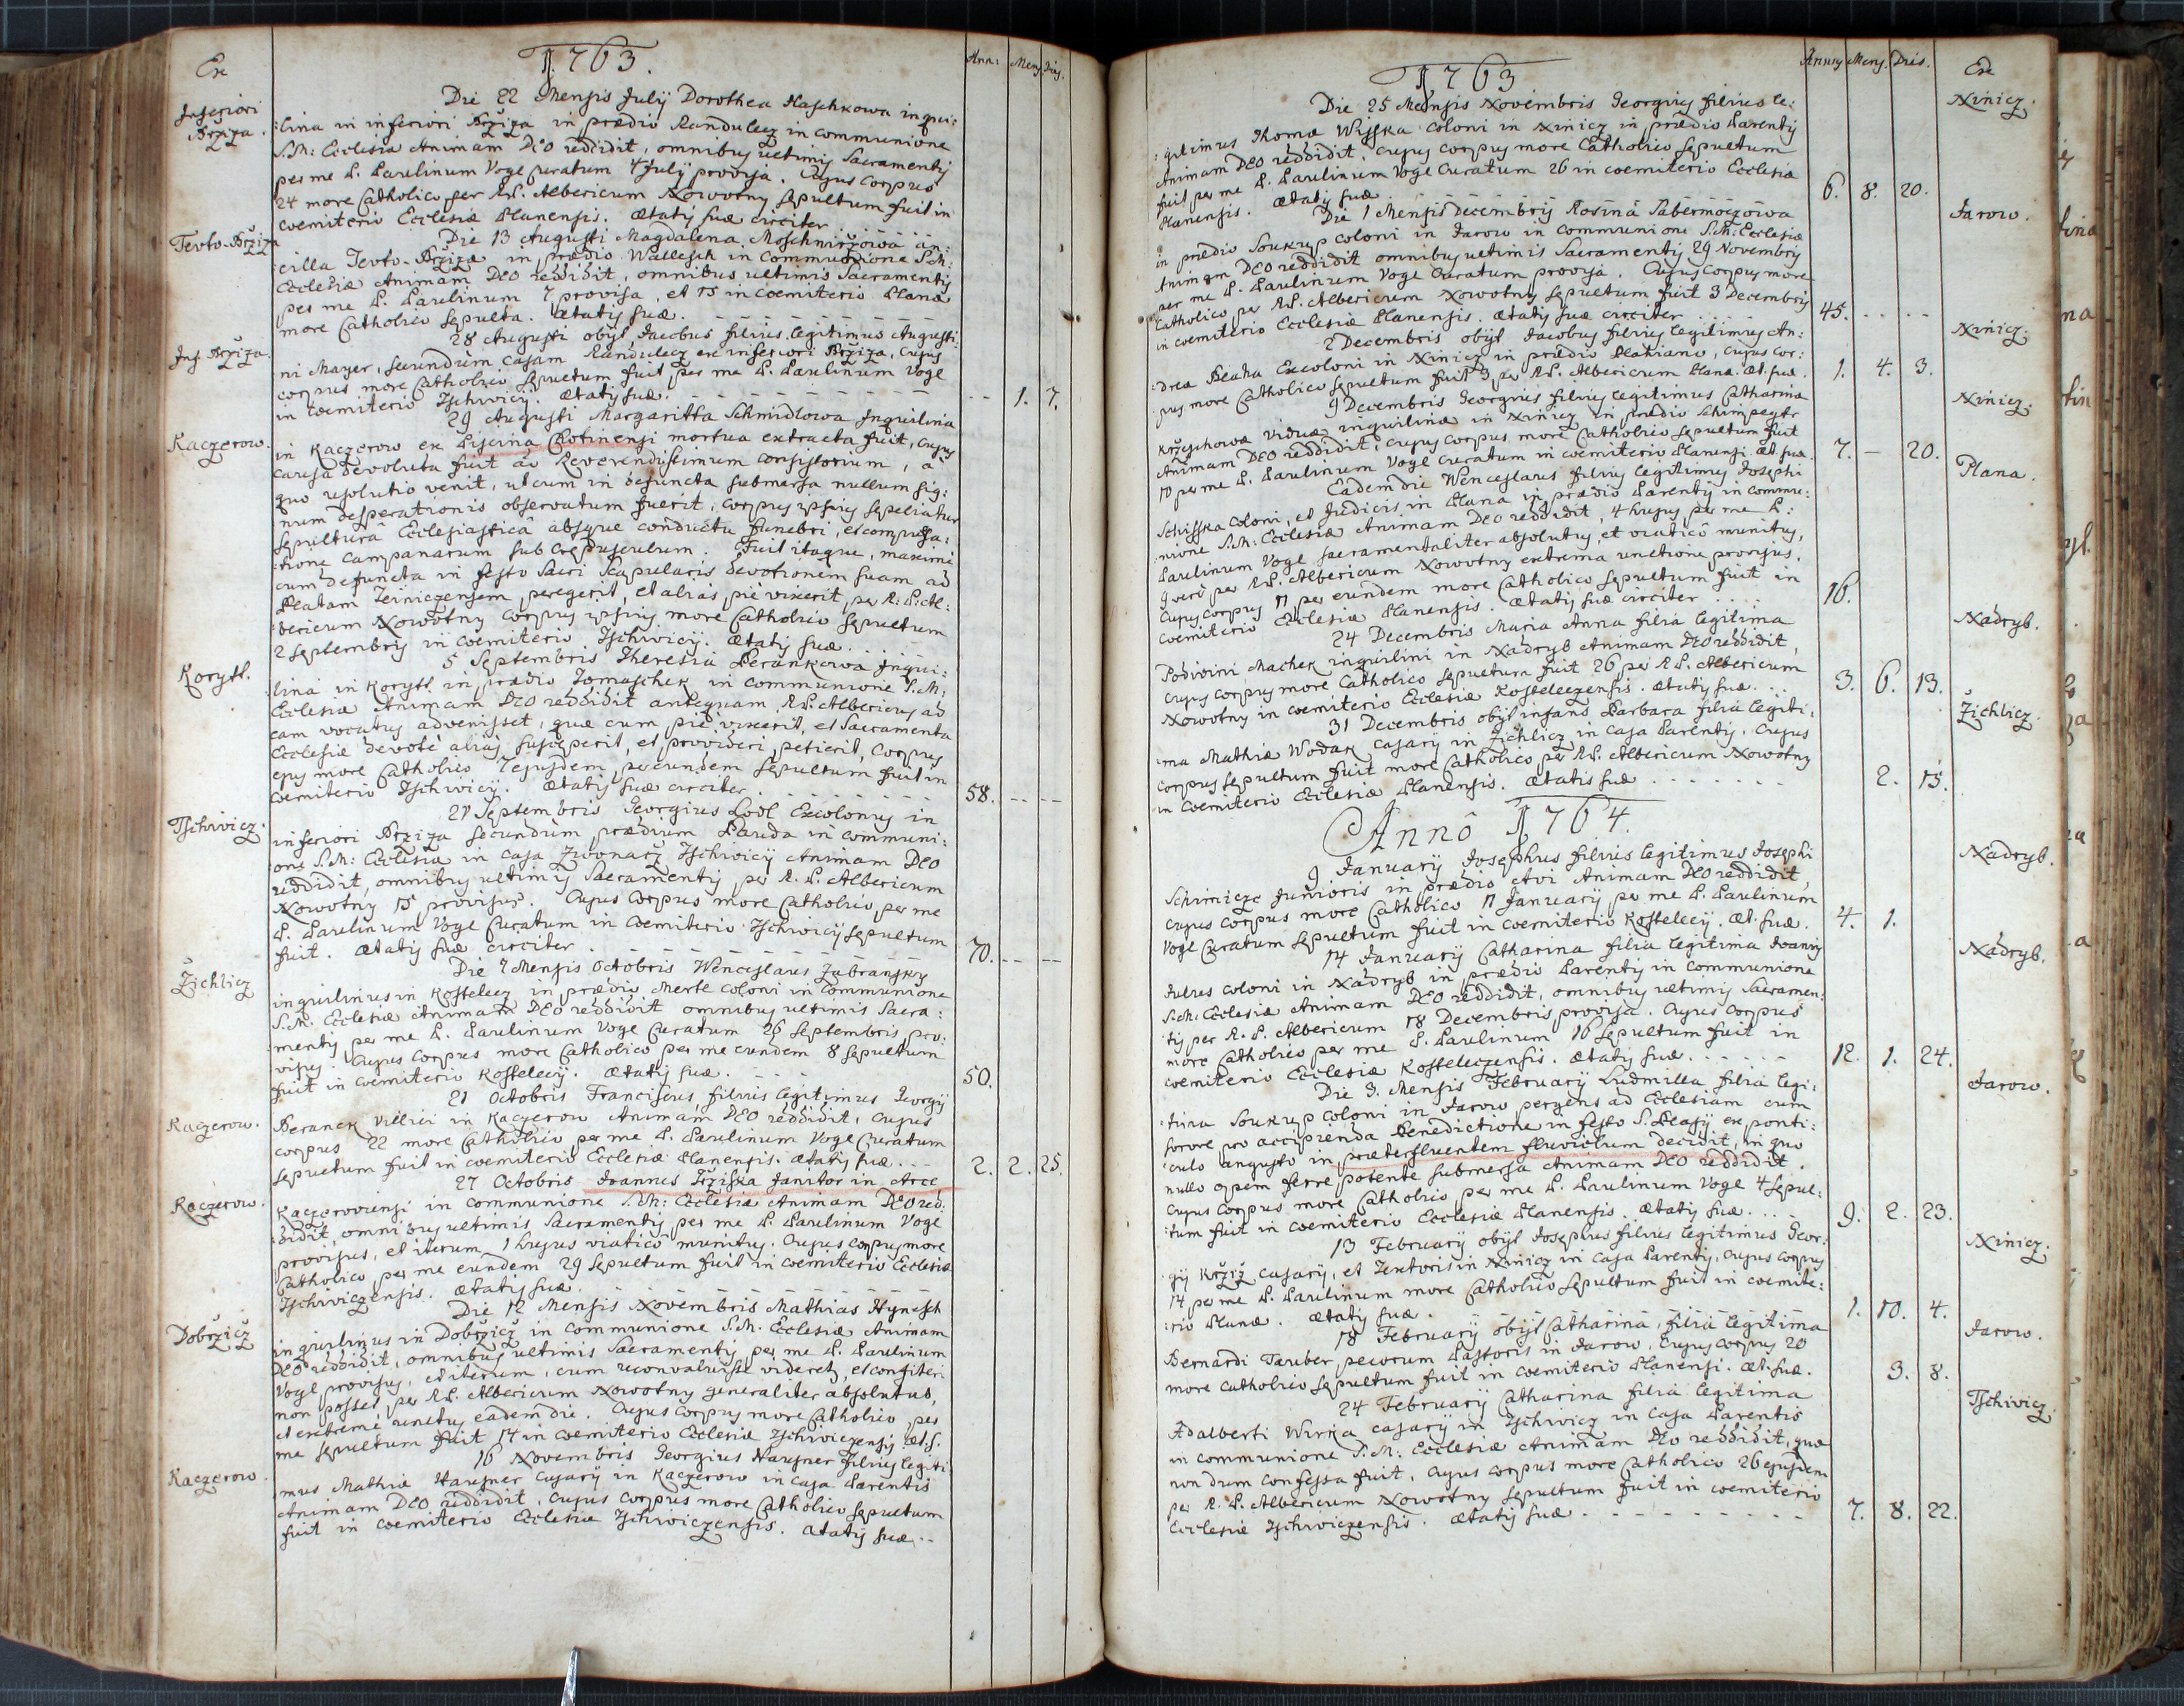 Ex
1763.
Ann: Mens. Dies.
Inferiori Brziza.
Die 22 Mensis Julij Dorothea Haschkowa inqui:
:lina in inferiori Brziza in prædio Randulecz in communione
S.M: Ecclesiæ Animam DEO reddidit, omnibus ultimis Sacramentis
per me P. Paulinum Vogl Curatum 4 Julij provisa. Cujus corpus
24 more Catholico per R.P. Albericum Nowotny sepultum fuit in
coemiterio Ecclesiæ Planensis. Ætatis suæ circiter
Tevto-Brziza
Die 13 Augusti Magdalena Moschnirzowa an:
:cilla Tevto-Brzizæ in prædio Wallesch in Communione S.M:
Ecclesiæ Animam DEO reddidit, omnibus ultimis Sacramentis
per me P. Paulinum 7 provisa, et 15 in coemiterio Planæ
more Catholico sepulta. Ætatis suæ.
Inf. Brziza.
28 Augusti obijt Jacobus filius legitimus Augusti:
ni Mayer, secundum casam Randulecz ex inferiori Brziza, cujus
corpus more Catholico sepultum fuit per me P. Paulinum Vogl
in coemiterio Tschiwicij. Ætatis suæ. -- 1. 7.
Kaczerow.
29 Augusti Margaritta Schmidlowa Inquilina
in Kaczerow ex Piscina Chotinensi mortua extracta fuit, cujus
causa devoluta fuit ad Reverendissimum consistorium, a
quo resolutio venit, ut cum in defuncta submersa nullum sig:
num desperationis observatum fuerit, corpus ipsius sepeliatur
sepultura Ecclesiastica absque conductu funebri, et compulsa:
tione campanarum sub crepusculum. Fuit itaque, maxime
cum defuncta in festo Sacri Scapularis devotionem suam ad
Beatam Teiniczensem, peregerit, et alias pie vixerit, per R: P: Al:
bericum Nowotny corpus ipsius more Catholico sepultum
2 Septembris in coemiterio Tschiwicij. Ætatis suæ.
Korytl.
5 Septembris Theresia Berankowa Inqui:
lina in Korytl in prædio Tomaschek in communione S.M:
Ecclesiæ Animam DEO reddidit antequam R.P. Albericus ad
eam vocatus advenisset, quæ cum pie vixerit, et Sacramenta
Ecclesiæ devote alias susceperit, et provideri petierit, corpus
ejus more Catholico 7 ejusdem per eundem sepultum fuit in
coemiterio Tschiwicij. Ætatis suæ circiter 58. -- --
Tschiwicz.
21 Septembris Georgius Lodl Excolonus in
inferiori Brziza secundum prædium Pauda in communi:
one S.M: Ecclesiæ in casa Zwonarz Tschiwicij Animam DEO
reddidit, omnibus ultimis Sacramentis per R. P. Albericum
Nowotny 15 provisus. Cujus corpus more Catholico per me
P. Paulinum Vogl Curatum in coemiterio Tschiwicij sepultum
fuit. Ætatis suæ circiter 70. -- --
Zichlicz
Die 7 Mensis Octobris Wenceslaus Zabransky
inquilinus in Kostelecz in prædio Mertl coloni in communione
S.M. Ecclesiæ Animam DEO reddidit omnibus ultimis Sacra:
mentis per me P. Paulinum Vogl Curatum 26 Septembris pro:
visus. Cujus corpus more Catholico per me eundem 8 sepultum
fuit in coemiterio Kostelecij. Ætatis suæ. 50.
Kaczerow.
21 Octobris Franciscus filius legitimus Georgij
Beranek villici in Kaczerow Animam DEO reddidit, cujus
corpus 22 more Catholico per me P. Paulinum Vogl Curatum
sepultum fuit in coemiterio Ecclesiæ Planensis. Ætatis suæ. 2. 2. 25.
Kaczerow.
27 Octobris Joannes Trziska Janitor in Arce
Kaczeroviensi in communione S.M: Ecclesiæ Animam DEO red:
didit, omnibus ultimis Sacramentis per me P. Paulinum Vogl
provisus, et iterum 1 hujus viatico munitus. Cujus corpus more
Catholico per me eundem 29 sepultum fuit in coemiterio Ecclesiæ
Tschiwiczensis. Ætatis suæ.
Dobrzicz
Die 12 Mensis Novembris Mathias Hynesch
inquilinus in Dobrzicz in communione S.M. Ecclesiæ Animam
DEO reddidit, omnibus ultimis Sacramentis per me P. Paulinum
Vogl provisus, et iterum, cum reconvaluisse videretur, et confiteri
non posset per R.P. Albericum Nowotny generaliter absolutus,
et extreme unctus eadem die. Cujus corpus more Catholico per
me sepultum fuit 14 in coemiterio Ecclesiæ Tschiwiczensis æt. s.
Kaczerow.
16 Novembris Georgius Hausner filius legiti
mus Mathiæ Hausner casarij in Kaczerow in casa Parentis
Animam DEO reddidit, cujus corpus more Catholico sepultum
fuit in coemiterio Ecclesiæ Tschiwiczensis. Ætatis suæ --
1763
Annus Mens. Dies.
Ex
Xinicz.
Die 25 Mensis Novembris Georgius filius le:
:gitimus Thomæ Wisska coloni in Xinicz in prædio Parentis
Animam DEO reddidit, cujus corpus more Catholico sepultum
fuit per me P. Paulinum Vogl Curatum 26 in coemiterio Ecclesiæ
Planensis. Ætatis suæ. 6. 8. 20.
Jarow.
Die 1 Mensis Decembris Rosina Sabermoczowa
in prædio Soukup coloni in Jarow in communione S.M: Ecclesiæ
Animam DEO reddidit omnibus ultimis Sacramentis 29 Novembris
per me P. Paulinum Vogl Curatum provisa. Cujus corpus more
Catholico per R.P. Albericum Nowotny sepultum fuit 3 Decembris
in coemiterio Ecclesiæ Planensis. Ætatis suæ circiter 45.
Xinicz.
2 Decembris obijt Jacobus filius legitimus An:
:dreæ Blaha Excoloni in Xinicz in prædio Blahiano, cujus cor:
pus more Catholico sepultum fuit 3 per R.P. Albericum Planæ. Æt. suæ. 1. 4. 3.
Xinicz.
9 Decembris Georgius filius legitimus Catharinæ
Krzepchowa viduæ inquilinæ in Xinicz in prædio Schimpeytr
Animam DEO reddidit, cujus corpus more Catholico sepultum fuit
10 per me P. Paulinum Vogl Curatum in coemiterio Planensi. Æt. suæ. 7. - 20.
Plana.
Eadem die Wenceslaus filius legitimus Josephi
Schisska coloni, et Judicis in Plana in prædio Parentis in commu:
:nione S.M: Ecclesiæ Animam DEO reddidit, 4 hujus per me P:
Paulinum Vogl Sacramentaliter absolutus, et viatico munitus,
9 vero per R.P. Albericum Nowotny extrema unctione provisus.
Cujus corpus 11 per eundem more Catholico sepultum fuit in
coemiterio Ecclesiæ Planensis. Ætatis suæ circiter 16.
Nadryb.
24 Decembris Maria Anna filia legitima
Podivini Machek inquilini in Nadryb Animam DEO reddidit,
cujus corpus more Catholico sepultum fuit 26 per R.P. Albericum
Nowotny in coemiterio Ecclesiæ Kosteleczensis. Ætatis suæ. 3. 6. 13.
Zichlicz.
31 Decembris obijt infans Barbara filia legiti:
:ma Mathiæ Wodak casarij in Zichlicz in casa Parentis. Cujus
corpus sepultum fuit more Catholico per R.P. Albericum Nowotny
in coemiterio Ecclesiæ Planensis. Ætatis suæ 2. 15.
Anno 1764.
Nadryb.
9 Januarij Josephus filius legitimus Josephi
Schimicze Junioris in prædio Avi Animam DEO reddidit,
cujus corpus more Catholico 11 Januarij per me P. Paulinum
Vogl Curatum sepultum fuit in coemiterio Kostelecij. Æt. suæ. 4. 1.
Nadryb.
14 Januarij Catharina filia legitima Joannis
Julres coloni in Nadryb in prædio Parentis in communione
S.M: Ecclesiæ Animam DEO reddidit, omnibus ultimis Sacramen:
tis per R. P. Albericum 18 Decembris provisa. Cujus corpus
more Catholico per me P. Paulinum 16 sepultum fuit in
coemiterio Ecclesiæ Kosteleczensis. Ætatis suæ. 12. 1. 24.
Jarow.
Die 3. Mensis Februarij Ludmilla filia legi:
tima Soukup coloni in Jarow pergens ad Ecclesiam cum
sorore pro accipienda Benedictione in festo S. Blasij ex ponti:
culo angusto in præterfluentem fluviolum decidit, in quo
nullo opem ferre potente submersa Animam DEO reddidit.
Cujus corpus more Catholico per me P. Paulinum Vogl 4 sepul:
:tum fuit in coemiterio Ecclesiæ Planensis. Ætatis suæ. 9. 2. 23.
Xinicz.
13 Februarij obijt Josephus filius legitimus Geor:
gij Krziz casarij, et Textoris in Xinicz in casa Parentis, cujus corpus
14 per me P. Paulinum more Catholico sepultum fuit in coemite:
:rio Planæ. Ætatis suæ. 1. 10. 4.
Jarow.
18 Februarij obijt Catharina filia legitima
Bernardi Tauber pecorum Pastoris in Jarow, cujus corpus 20
more Catholico sepultum fuit in coemiterio Planensi. Æt. suæ. 3. 8.
Tschiwicz.
24 Februarij Catharina filia legitima
Adalberti Wirka casarij in Tschiwicz in casa Parentis
in communione S.M. Ecclesiæ Animam DEO reddidit, quæ
non dum confessa fuit, cujus corpus more Catholico 26 ejusdem
per R. P. Albericum Nowotny sepultum fuit in coemiterio
Ecclesiæ Tschiwiczensis. Ætatis suæ 7. 8. 22.